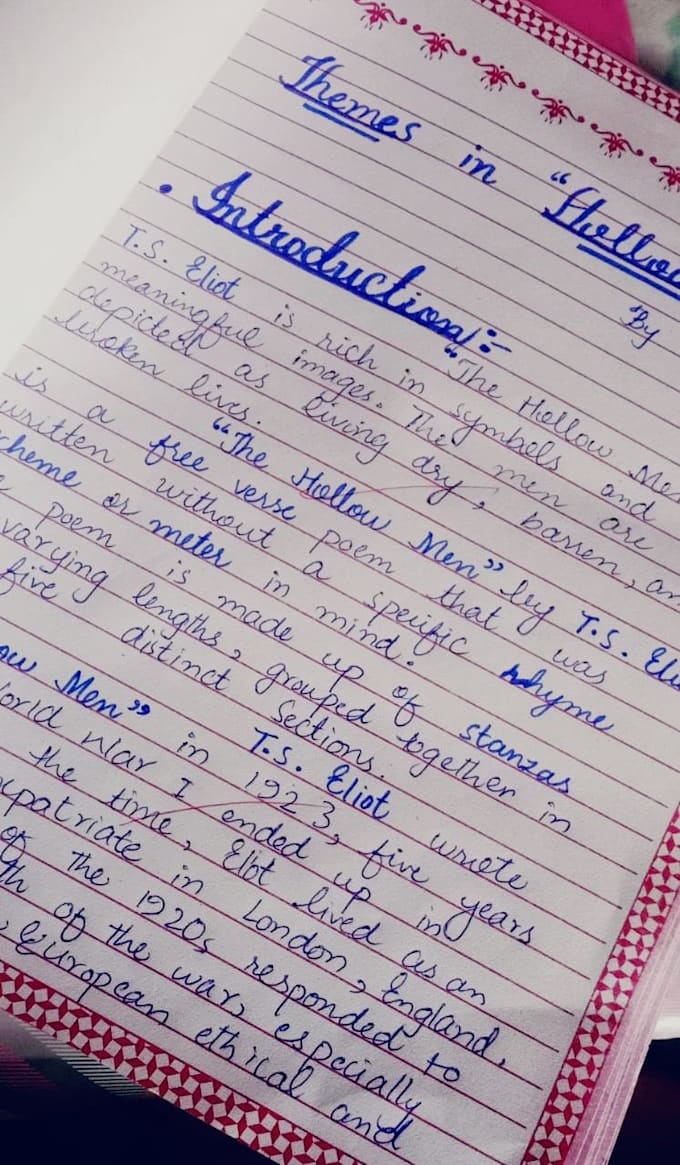 Themes in "Hollow
By
• Introduction:-
"The Hollow Men
T.S. Eliot is rich in symbols and
meaningful images. The men are
depicted as living dry, barren, an
broken lives.
"The Hollow Men" by T.S. Eli
is a free verse poem that was
written without a specific rhyme
cheme or meter in mind.
e poem is made up of stanzas
varying lengths, grouped together in
five distinct sections.
T.S. Eliot wrote
ow Men" in 1923, five years
orld War I ended up in
the time, Eliot lived as an
xpatriate in London, England.
of the 1920s responded to
th of the war, especially
European ethical and